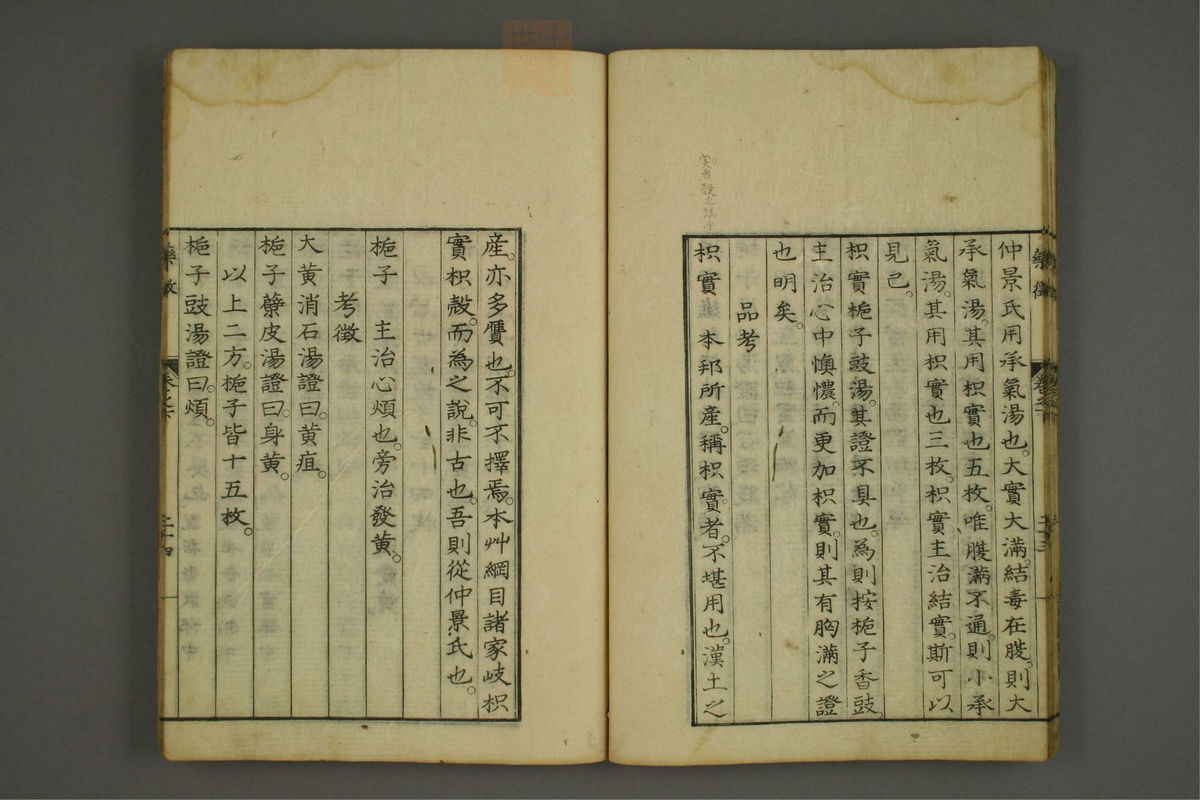 仲景氏用承氣湯也。大實大滿。結毒在腹。則大
承氣湯。其用枳實也五枚。唯腹滿不通。則小承
氣湯。其用枳實也三枚。枳實主治結實。斯可以
見已。
枳實梔子豉湯。其證不具也。為則按梔子香豉。
主治心中懊憹。而更加枳實。則其有胸滿之證
也明矣。
品考
枳實 本邦所産。稱枳實。者。不堪用也。漢土之
産。亦多贋也。不可不擇焉。本艸綱目諸家岐枳
實枳殼。而為之說。非古也。吾則從仲景氏也。
梔子 主治心煩也。旁治發黄。
考徵
大黄消石湯證曰。黄疸。
梔子蘗皮湯證曰。身黄。
以上二方。梔子皆十五枚。
梔子豉湯證曰。煩。
藥徵